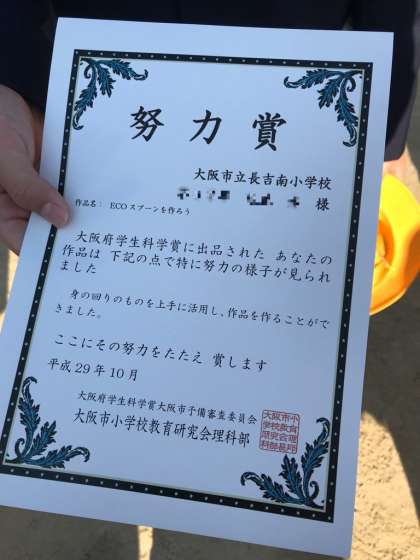 努力賞
大阪市立長吉南小学校
様
作品名: ECOスプーンを作ろう
大阪府学生科学賞に出品された あなたの
作品は 下記の点で特に努力の様子が見られ
ました
身の回りのものを上手に活用し、作品を作ることがで
きました。
ここにその努力をたたえ 賞します
平成29年10月
大阪府学生科学賞大阪市予備審査委員会
大阪市小学校教育研究会理科部